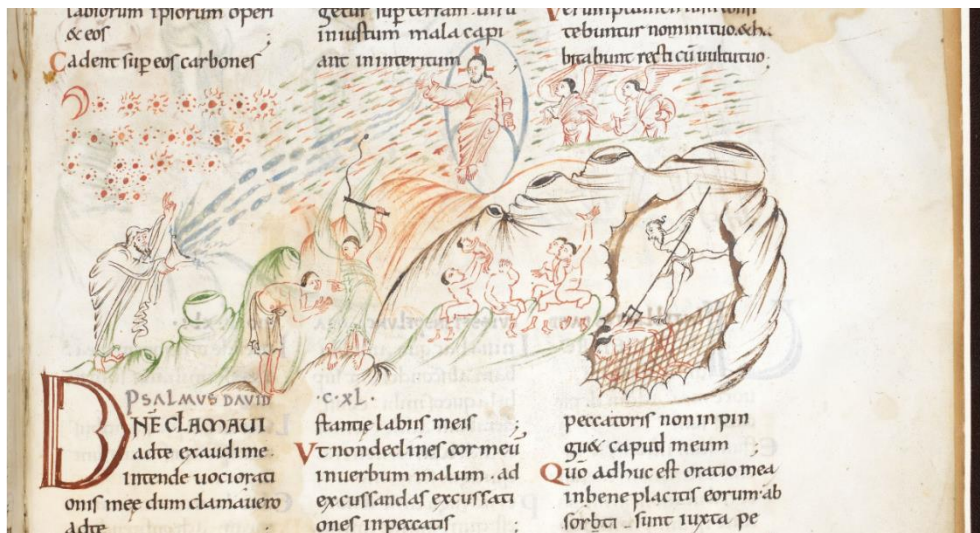 labiorum ipsorum operi
& eos
Cadent sup eos carbones
getur sup terram. uiru
iniustum mala capi
ant in interitum
tebuntur nomini tuo. &h
bitabunt recti cū uultu tuo.
PSALMUS DAVID
DNE CLAMAVI
ad te exaudi me.
intende uoci orati
onis meę dum clamauero
ad te
.CXL.
stantię labiis meis
Ut non declines cor meū
in uerbum malum. ad
excusandas excussati
ones in peccatis
peccatoris non in pin
gu& caput meum
Quō adhuc est oratio mea
in bene placitis eorum. ab
sorbti sunt iuxta pe